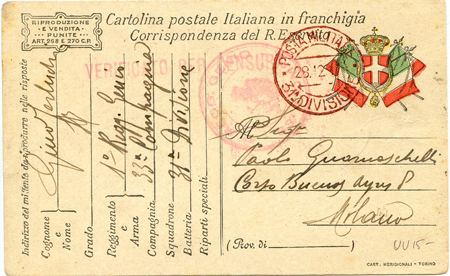 RIPRODUZIONE
E VENDITA
PUNITE
ART. 258 E 270 C.P.
Cartolina postale Italiana in franchigia
Corrispondenza del R. E
POSTA MILITARE
28.12
31 DIVISIONE
VERIFICATO PER CENSURA
Indirizzo del mittente da riportare nelle risposte
Cognome e Nome
Gino
Grado
Reggimento o Arma
1° Regg. Genio
Compagnia
33ª Compagnia
Squadrone
31ª Divisione
Batteria
Riparti speciali
Al
Paolo Guarnaschelli
Corso Buenos Ayres 8
Milano
(Prov. di
)
UU15-
CART. MERIDIONALI - TORINO